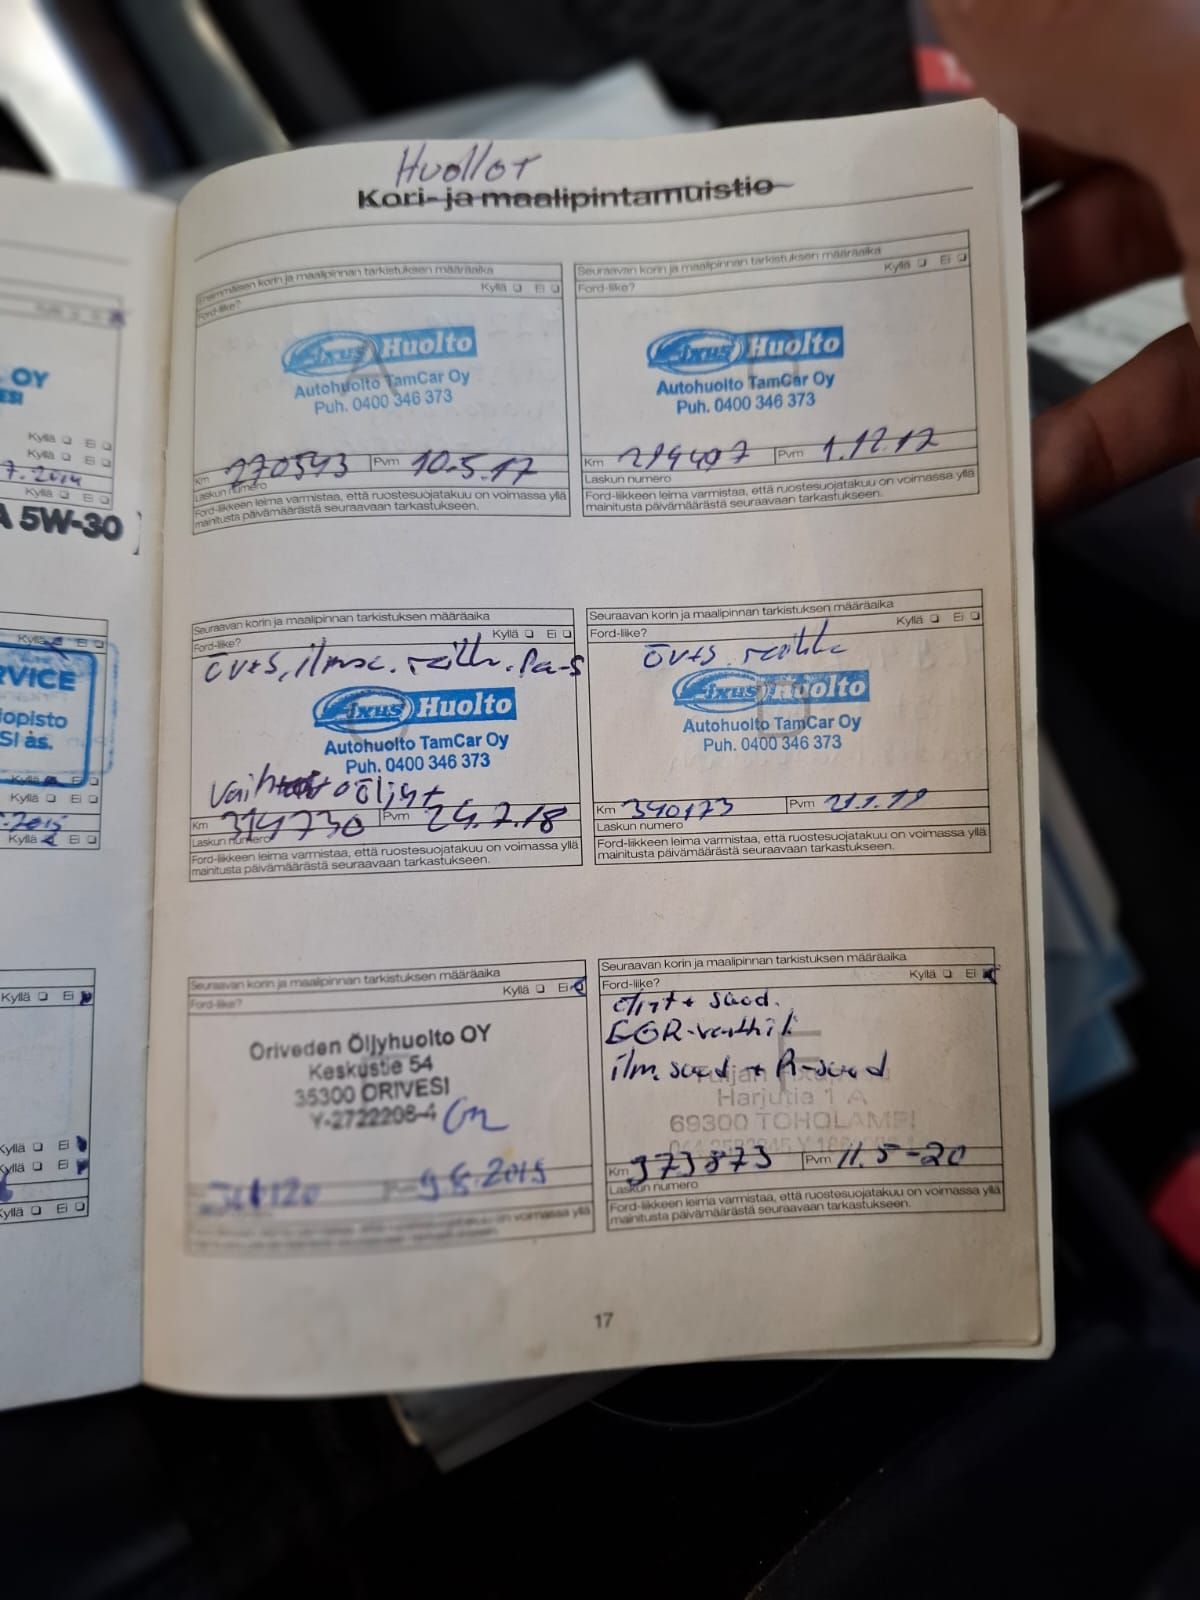 Huollot
Kori- ja maalipintamuistio
Ensimmäisen korin ja maalipinnan tarkistuksen määräaika
Kyllä Ei
Ford-liike?
Fixus Huolto
Autohuolto TamCar Oy
Puh. 0400 346 373
Km 270543 Pvm 10.5.17
Laskun numero
Ford-liikkeen leima varmistaa, että ruostesuojatakuu on voimassa yllä
mainitusta päivämäärästä seuraavaan tarkastukseen.
Seuraavan korin ja maalipinnan tarkistuksen määräaika
Kyllä Ei
Ford-liike?
Fixus Huolto
Autohuolto TamCar Oy
Puh. 0400 346 373
Km Pvm 1.12.17
Laskun numero
Ford-liikkeen leima varmistaa, että ruostesuojatakuu on voimassa yllä
mainitusta päivämäärästä seuraavaan tarkastukseen.
Seuraavan korin ja maalipinnan tarkistuksen määräaika
Kyllä Ei
Ford-liike?
öv+s, ilmas.
Fixus Huolto
Autohuolto TamCar Oy
Puh. 0400 346 373
öljyt
Km 314730 Pvm 24.7.18
Laskun numero
Ford-liikkeen leima varmistaa, että ruostesuojatakuu on voimassa yllä
mainitusta päivämäärästä seuraavaan tarkastukseen.
Seuraavan korin ja maalipinnan tarkistuksen määräaika
Kyllä Ei
Ford-liike?
öv+s
Fixus Huolto
Autohuolto TamCar Oy
Puh. 0400 346 373
Km 340173 Pvm 21.1.19
Laskun numero
Ford-liikkeen leima varmistaa, että ruostesuojatakuu on voimassa yllä
mainitusta päivämäärästä seuraavaan tarkastukseen.
Seuraavan korin ja maalipinnan tarkistuksen määräaika
Kyllä Ei
Ford-liike?
Oriveden Öljyhuolto OY
Keskustie 54
35300 ORIVESI
Y-2722208-4
9.8.2019
Seuraavan korin ja maalipinnan tarkistuksen määräaika
Kyllä Ei
Ford-liike?
öljyt + suod.
EGR-venttiil
ilm. suod + R-suod
Harjutie 1 A
69300 TOHOLAMPI
Km 373873 Pvm 11.5-20
Laskun numero
Ford-liikkeen leima varmistaa, että ruostesuojatakuu on voimassa yllä
mainitusta päivämäärästä seuraavaan tarkastukseen.
17
OY
Kyllä Ei
Kyllä Ei
7.2014
Kyllä Ei
A 5W-30
Kyllä Ei
RVICE
opisto
SI as.
Kyllä Ei
Kyllä Ei
2015
Kyllä Ei
Kyllä Ei
Kyllä Ei
Kyllä Ei
Kyllä Ei